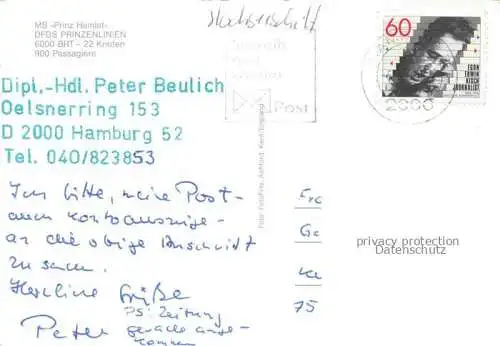 MS »Prinz Hamlet«
DFDS PRINZENLINIEN
6000 BRT – 22 Knoten
900 Passagiere
Dipl.-Hdl. Peter Beulich
Oelsnerring 153
D 2000 Hamburg 52
Tel. 040/823853
Ich bitte, meine Post-
auch Kontoauszüge -
an die obige Anschrift
zu senden.
Herzliche Grüße
PS: Zeitung
Peter gerade ange-
kommen
Post
2000
60
EGON
ERWIN
KISCH
JOURNALIST
Fra
Ge
75
privacy protection
Datenschutz